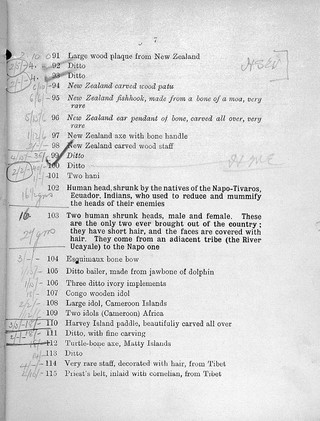 7
91 Large wood plaque from New Zealand
92 Ditto
93 Ditto
94 New Zealand carved wood patu
95 New Zealand fishhook, made from a bone of a moa, very
rare
96 New Zealand ear pendant of bone, carved all over, very
rare
97 New Zealand axe with bone handle
98 New Zealand carved wood staff
99 Ditto
100 Ditto
101 Two hani
102 Human head, shrunk by the natives of the Napo-Tivaros,
Ecuador, Indians, who used to reduce and mummify
the heads of their enemies
16 103 Two human shrunk heads, male and female. These
are the only two ever brought out of the country;
they have short hair, and the faces are covered with
hair. They come from an adjacent tribe (the River
Ucayale) to the Napo one
3/-/- 104 Esquimaux bone bow
105 Ditto bailer, made from jawbone of dolphin
106 Three ditto ivory implements
107 Congo wooden idol
108 Large idol, Cameroon Islands
109 Two idols (Cameroon) Africa
110 Harvey Island paddle, beautifully carved all over
111 Ditto, with fine carving
112 Turtle-bone axe, Matty Islands
113 Ditto
114 Very rare staff, decorated with hair, from Tibet
115 Priest's belt, inlaid with cornelian, from Tibet